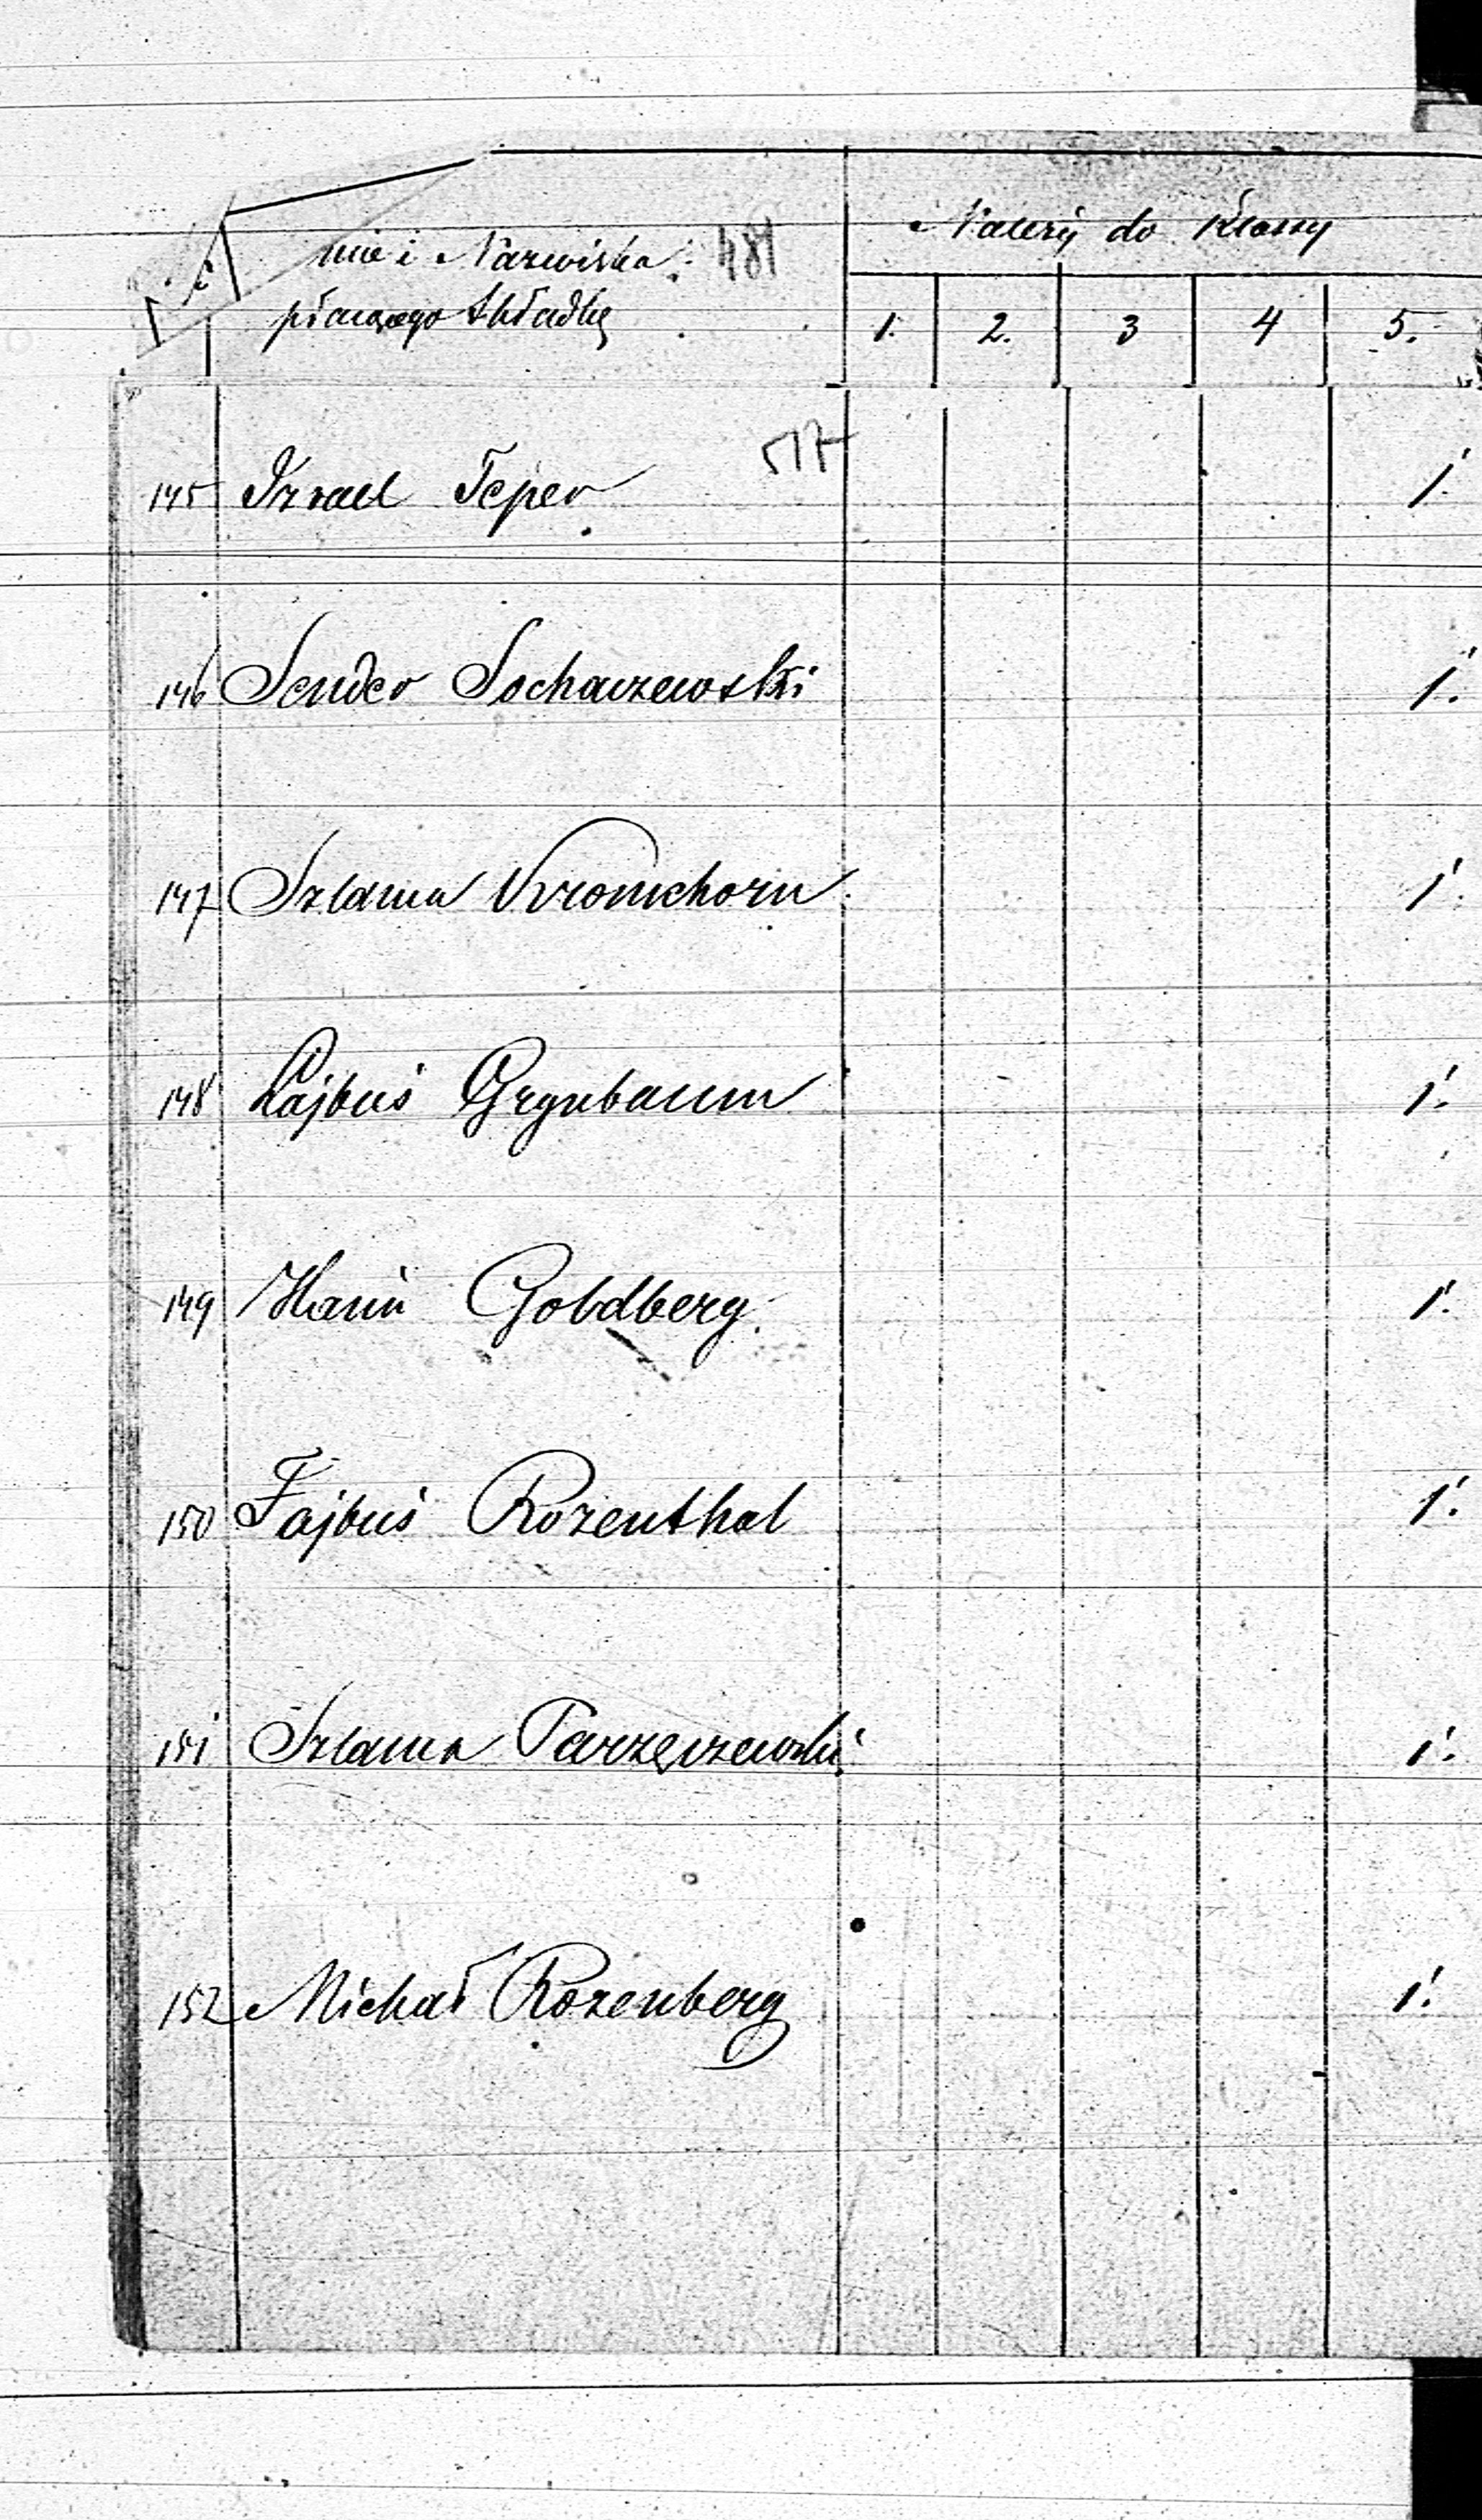 Imie i Nazwiska 481 Należy do Klassy
płacącego Składkę 1. 2. 3 4 5.
517
145 Izrael Teper 1.
146 Sender Sochaczewski 1.
147 Szlama Wronchorn 1.
148 Lajbuś Grynbaum 1.
149 Haim Goldberg. 1.
150 Fajbuś Rozenthal 1.
151 Szlama Parzęczewski 1.
152 Michał Rozenberg 1.